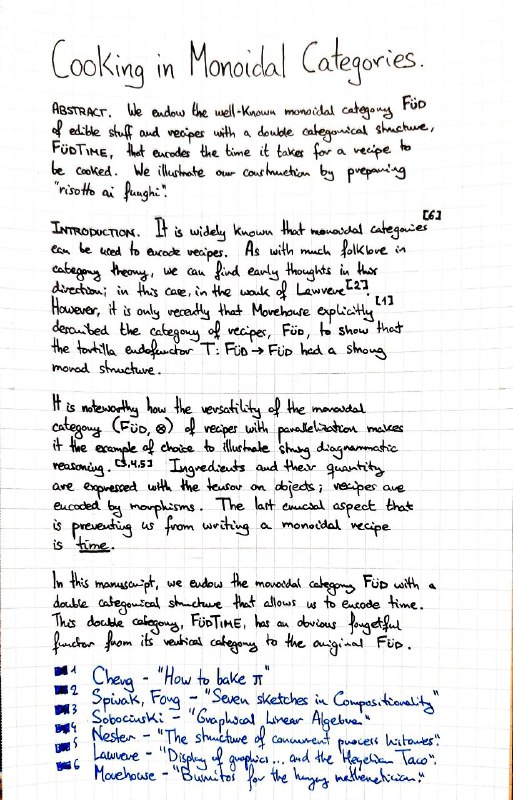 Cooking in Monoidal Categories.
ABSTRACT. We endow the well-known monoidal category FÜD
of edible stuff and recipes with a double categorical structure,
FÜDTIME, that encodes the time it takes for a recipe to
be cooked. We illustrate our construction by preparing
"risotto ai funghi".
INTRODUCTION. It is widely known that monoidal categories [6]
can be used to encode recipes. As with much folklore in
category theory, we can find early thoughts in this
direction; in this case, in the work of Lawvere [2].
However, it is only recently that Morehouse explicitly [1]
described the category of recipes, FÜD, to show that
the tortilla endofunctor T: FÜD → FÜD had a strong
monad structure.
It is noteworthy how the versatility of the monoidal
category (FÜD, ⊗) of recipes with parallelization makes
it the example of choice to illustrate string diagrammatic
reasoning. [3,4,5] Ingredients and their quantity
are expressed with the tensor on objects; recipes are
encoded by morphisms. The last crucial aspect that
is preventing us from writing a monoidal recipe
is time.
In this manuscript, we endow the monoidal category FÜD with a
double categorical structure that allows us to encode time.
This double category, FÜDTIME, has an obvious forgetful
functor from its vertical category to the original FÜD.
1 Cheng - "How to bake π"
2 Spivak, Fong - "Seven sketches in Compositionality"
3 Sobocinski - "Graphical Linear Algebra"
4 Nester - "The structure of concurrent process histories".
5 Lawvere - "Display of graphics... and the Hegelian Taco".
6 Morehouse - "Burritos for the hungry mathematician".